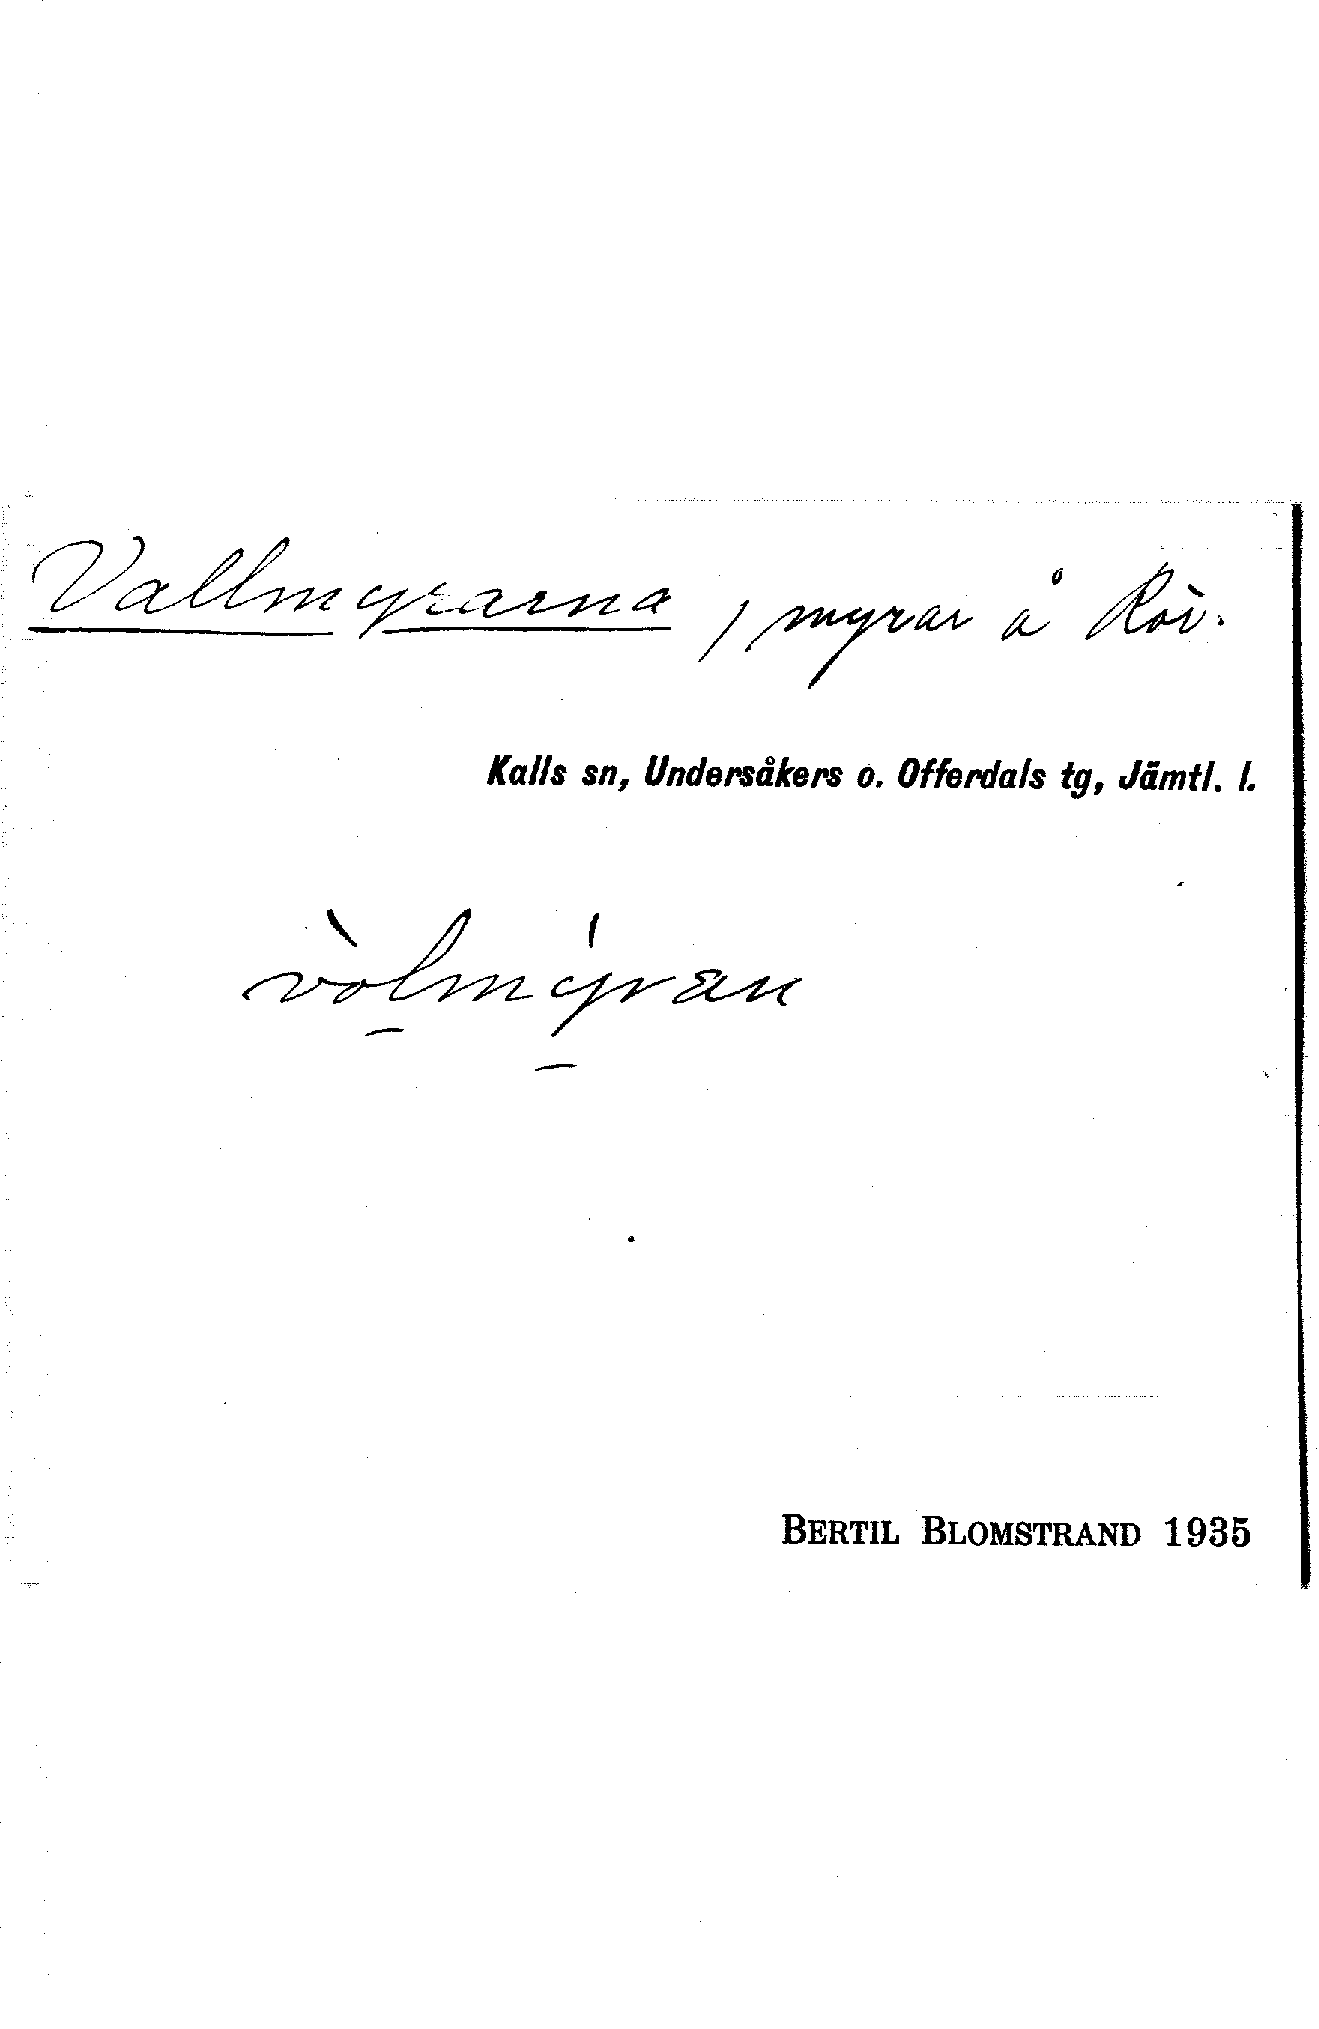 Vallmyrarna, myrar å Röv.
Kalls sn, Undersåkers o. Offerdals tg, Jämtl. l.
vòlmýran
BERTIL BLOMSTRAND 1935